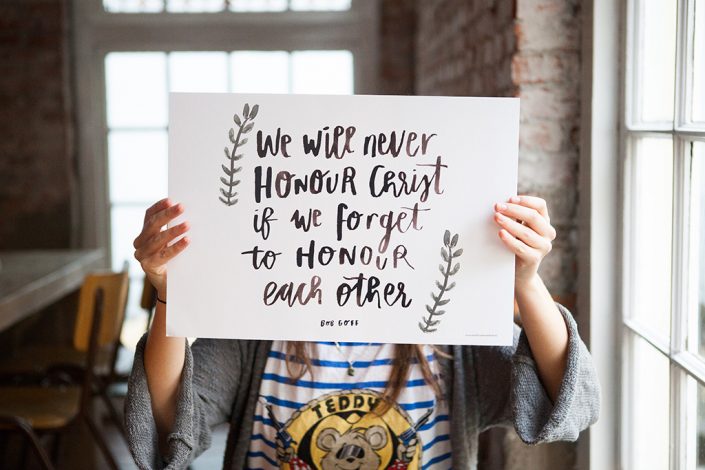 We will never
HONOUR Christ
if we forget
to HONOUR
each other
BOB GOFF
TEDDY